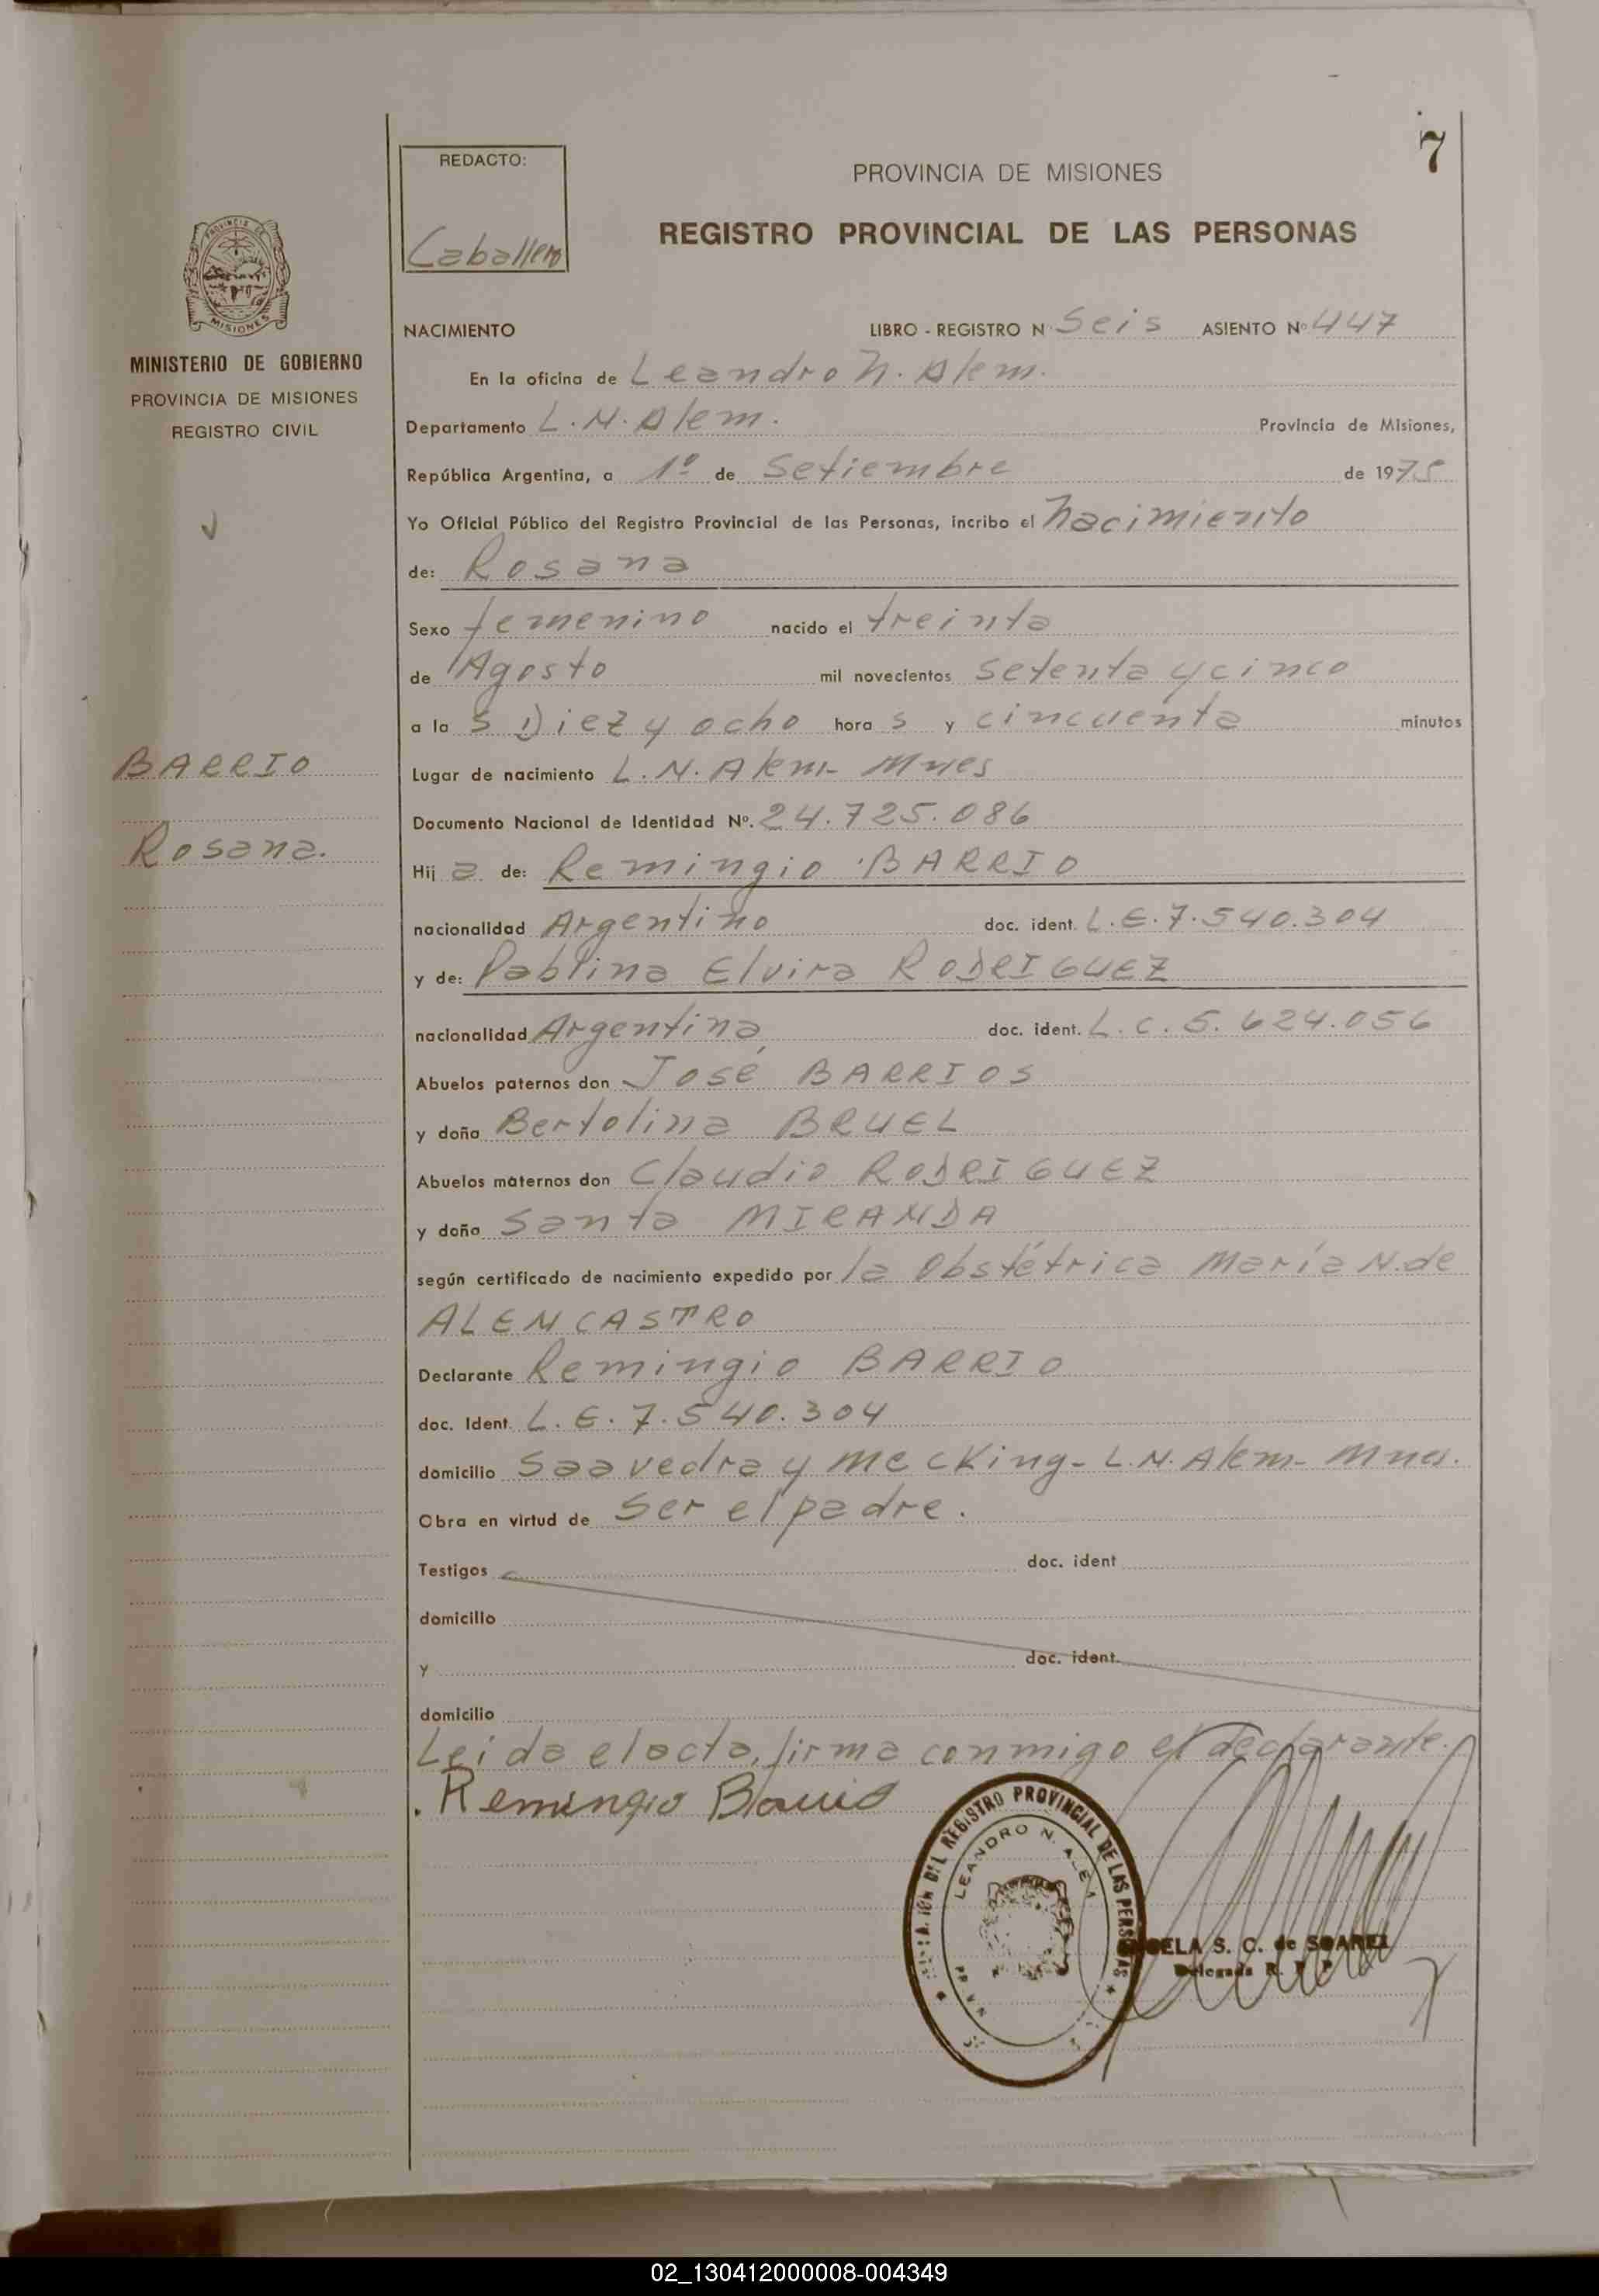 7
REDACTO:
Caballero
PROVINCIA DE MISIONES
REGISTRO PROVINCIAL DE LAS PERSONAS
PROVINCIA DE
MISIONES
MINISTERIO DE GOBIERNO
PROVINCIA DE MISIONES
REGISTRO CIVIL
NACIMIENTO LIBRO - REGISTRO N Seis ASIENTO Nº 447
En la oficina de Leandro N. Alem.
Departamento L. N. Alem. Provincia de Misiones,
República Argentina, a 1º de Setiembre de 1975
Yo Oficial Público del Registro Provincial de las Personas, incribo el Nacimiento
de: Rosana
Sexo femenino nacido el treinta
de Agosto mil novecientos setenta y cinco
a la s Diez y ocho hora s y cincuenta minutos
BARRIO
Rosana.
Lugar de nacimiento L. N. Alem- Mnes
Documento Nacional de Identidad Nº. 24.725.086
Hij a de: Remingio BARRIO
nacionalidad Argentino doc. ident. L.E. 7.540.304
y de: Pablina Elvira RODRIGUEZ
nacionalidad Argentina doc. ident. L.C. 5.624.056
Abuelos paternos don José BARRIOS
y doña Bertolina BRUEL
Abuelos maternos don Claudio RODRIGUEZ
y doña Santa MIRANDA
según certificado de nacimiento expedido por la Obstétrica María N. de
ALENCASTRO
Declarante Remingio BARRIO
doc. Ident. L. E. 7.540.304
domicilio Saavedra y Mecking- L.N. Alem- Mnes.
Obra en virtud de ser el padre.
Testigos doc. ident
domicilio
y doc. ident.
domicilio
Leida el acta, firma conmigo el declarante.
Remingio Barrio
DEL REGISTRO PROVINCIAL DE LAS PERSONAS
LEANDRO N. ALEM
S. C. de SOAREZ
Delegada R. P. P.
02_130412000008-004349